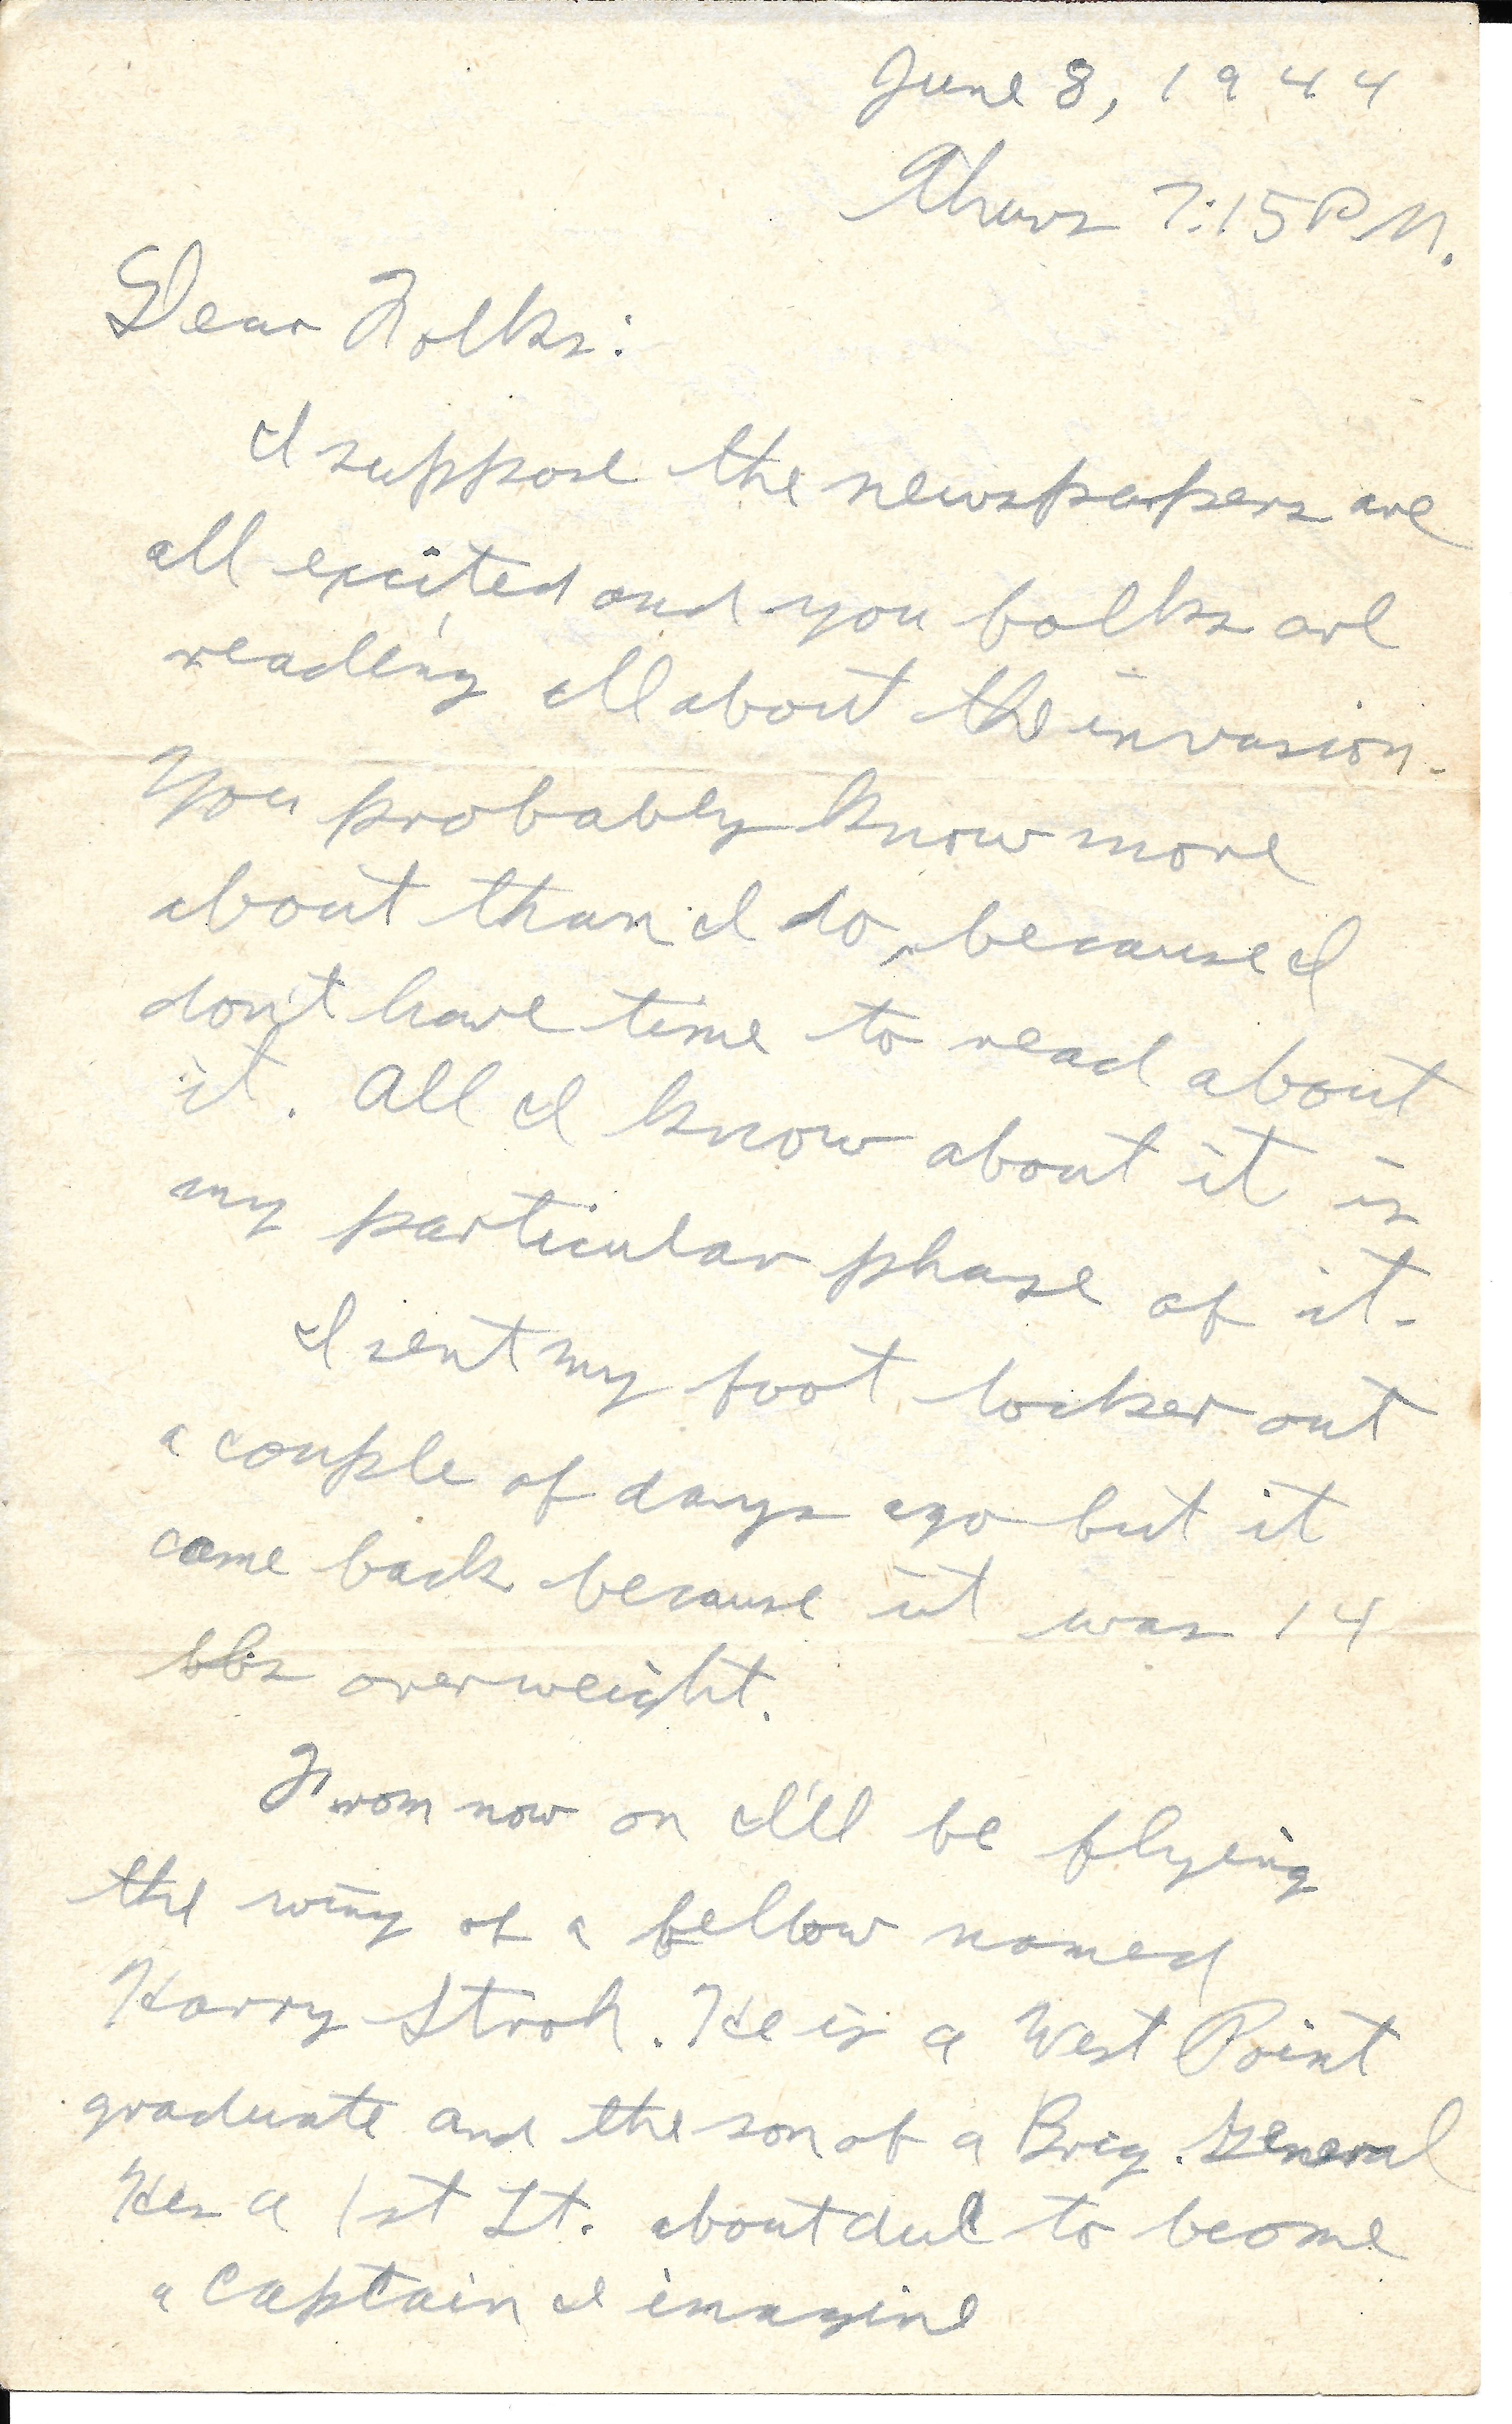 June 8, 1944
Thurs 7:15 P.M.
Dear Folks:
I suppose the newspapers are
all excited and you folks are
reading all about the invasion.
You probably know more
about than I do, because I
don't have time to read about
it. All I know about it is
my particular phase of it.
I sent my foot locker out
a couple of days ago but it
came back because it was 14
lbs overweight.
From now on I'll be flying
the wing of a fellow named
Harry Stroh. He is a West Point
graduate and the son of a Brig. General
Hes a 1st Lt. about due to become
a captain I imagine